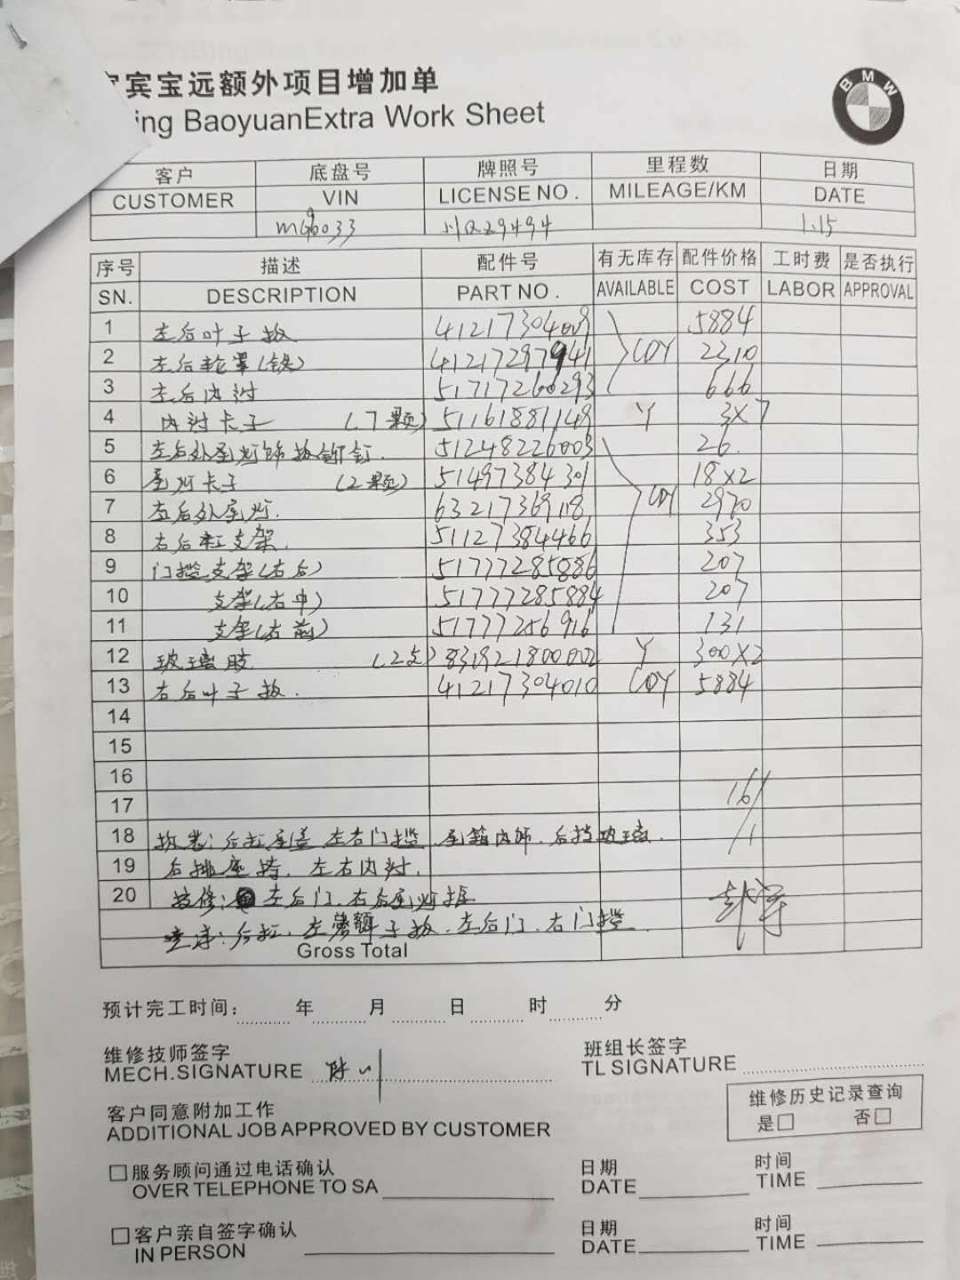 宾宝远额外项目增加单
ing BaoyuanExtra Work Sheet
BMW
客户 底盘号 牌照号 里程数 日期
CUSTOMER VIN LICENSE NO. MILEAGE/KM DATE
川Q29494 1.15
序号 描述 配件号 有无库存 配件价格 工时费 是否执行
SN. DESCRIPTION PART NO. AVAILABLE COST LABOR APPROVAL
1 左后叶子板 41217304009 5884
2 左后轮罩(铁) 41217297941 CDY 2310
3 左后内衬 51717260293 666
4 内衬卡子 (7颗) 51161881149 Y 3X7
5 左后外尾灯饰板铆钉. 51248226003 26.
6 尾灯卡子 (2颗) 51497384301 18X2
7 左后外尾灯. 63217369118 CDY 2970
8 右后杠支架. 51127384466 353
9 门槛支架(右后) 51777285886 207
10 支架(右中) 51777285884 207
11 支架(右前) 51777256916 131
12 玻璃胶 (2支) 83192180002 Y 300X2
13 右后叶子板. 41217304010 CDY 5884
14
15
16
17 16/1
18 拆装: 后杠 尾盖 左右门槛 尾箱内饰. 后挡玻璃.
19 后排座椅. 左右内衬.
20 技修: 左后门. 右后尾灯框
后杠. 左 子板. 左后门. 右门槛.
Gross Total
预计完工时间: 年 月 日 时 分
维修技师签字 班组长签字
MECH.SIGNATURE TL SIGNATURE
维修历史记录查询
是□ 否□
客户同意附加工作
ADDITIONAL JOB APPROVED BY CUSTOMER
□服务顾问通过电话确认 日期 时间
OVER TELEPHONE TO SA DATE TIME
□客户亲自签字确认 日期 时间
IN PERSON DATE TIME